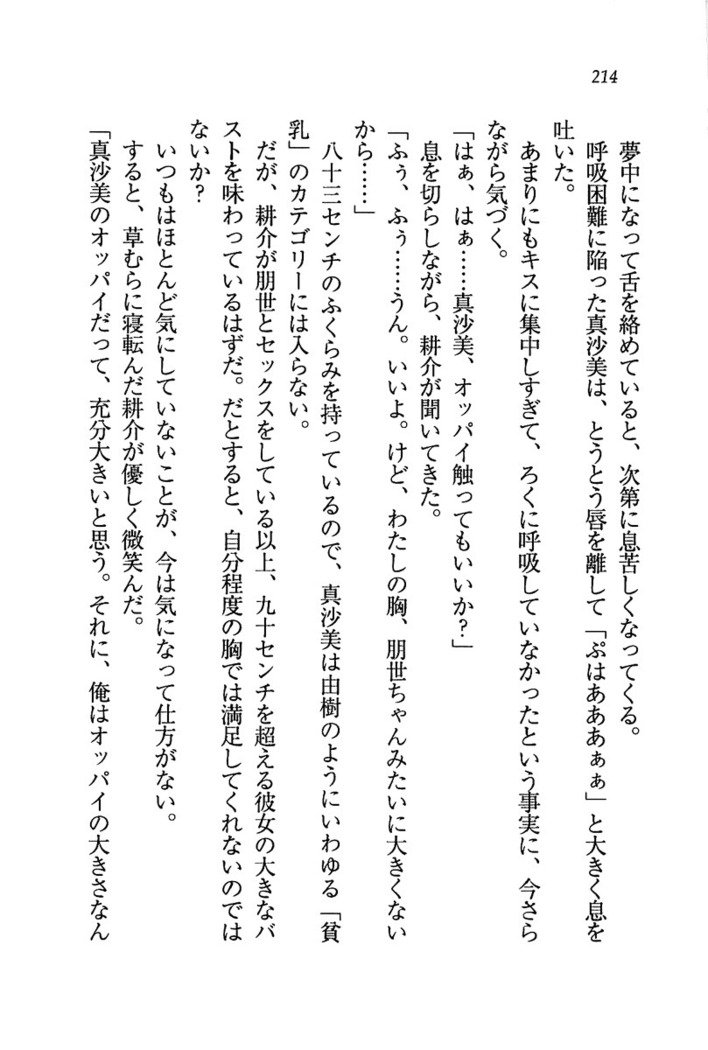 214
夢中になって舌を絡めていると、次第に息苦しくなってくる。
呼吸困難に陥った真沙美は、とうとう唇を離して「ぷはあああぁぁ」と大きく息を
吐いた。
あまりにもキスに集中しすぎて、ろくに呼吸していなかったという事実に、今さら
ながら気づく。
「はぁ、はぁ……真沙美、オッパイ触ってもいいか?」
息を切らしながら、耕介が聞いてきた。
「ふぅ、ふぅ……うん。いいよ。けど、わたしの胸、朋世ちゃんみたいに大きくない
から……」
八十三センチのふくらみを持っているので、真沙美は由樹のようにいわゆる「貧
乳」のカテゴリーには入らない。
だが、耕介が朋世とセックスをしている以上、九十センチを超える彼女の大きなバ
ストを味わっているはずだ。だとすると、自分程度の胸では満足してくれないのでは
ないか?
いつもはほとんど気にしていないことが、今は気になって仕方がない。
すると、草むらに寝転んだ耕介が優しく微笑んだ。
「真沙美のオッパイだって、充分大きいと思う。それに、俺はオッパイの大きさなん